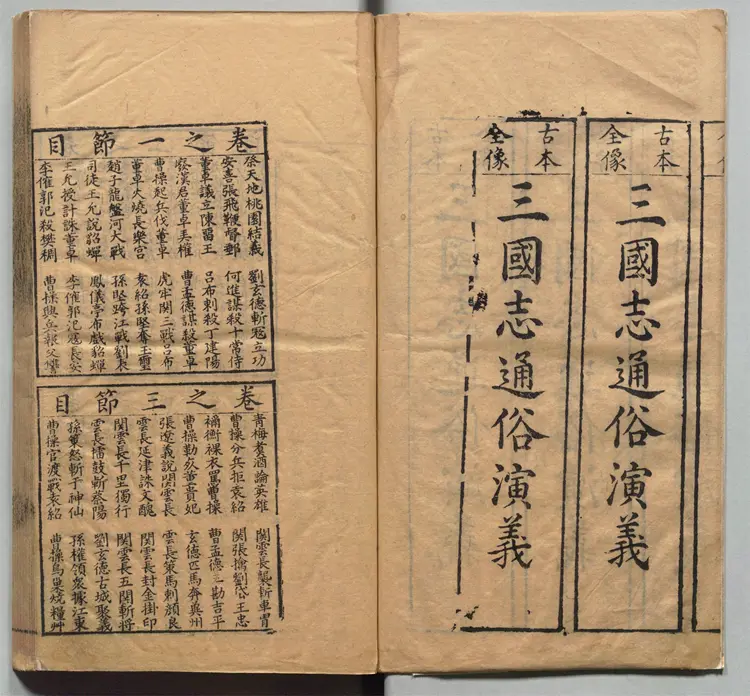 古本
全像
三國志通俗演義
古本
全像
三國志通俗演義
卷之一節目
祭天地桃園結義 劉玄德斬寇立功
安喜張飛鞭督郵 何進謀殺十常侍
董卓議立陳留王 呂布刺殺丁建陽
廢漢君董卓弄權 曹孟德謀殺董卓
曹操起兵伐董卓 虎牢関三戰呂布
董卓火燒長樂宮 袁紹孫堅奪玉璽
趙子龍盤河大戰 孫堅跨江戰劉表
司徒王允說貂蟬 鳳儀亭布戲貂蟬
王允授計誅董卓 李傕郭汜寇長安
李傕郭汜殺樊稠 曹操興兵報父讐
卷之三節目
青梅煑酒論英雄 関雲長襲斬車胄
曹操分兵拒袁紹 関張擒劉岱王忠
禰衡裸衣罵曹操 曹孟德三勘吉平
曹操勒死董貴妃 玄德匹馬奔冀州
張遼義說関雲長 雲長策馬刺顏良
雲長延津誅文醜 関雲長封金掛印
関雲長千里獨行 関雲長五関斬將
雲長擂鼓斬蔡陽 劉玄德古城聚義
孫策怒斬于神仙 孫權領衆據江東
曹操官渡戰袁紹 曹操烏巢燒糧艸